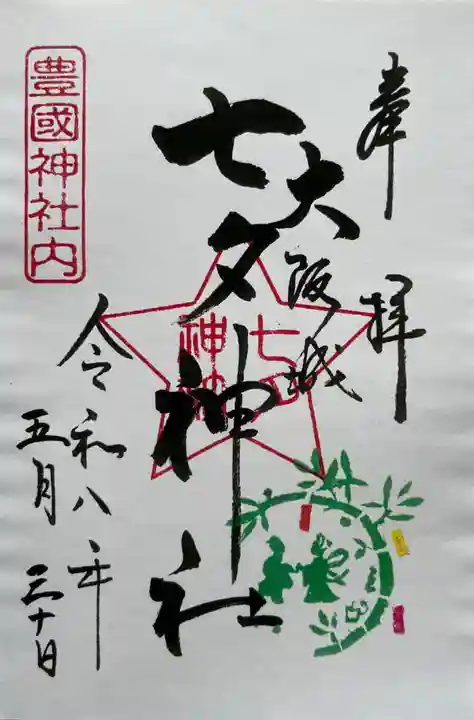 奉拝
大阪城
七夕神社
七夕
神社
令和八年
五月三十日
豊國神社内